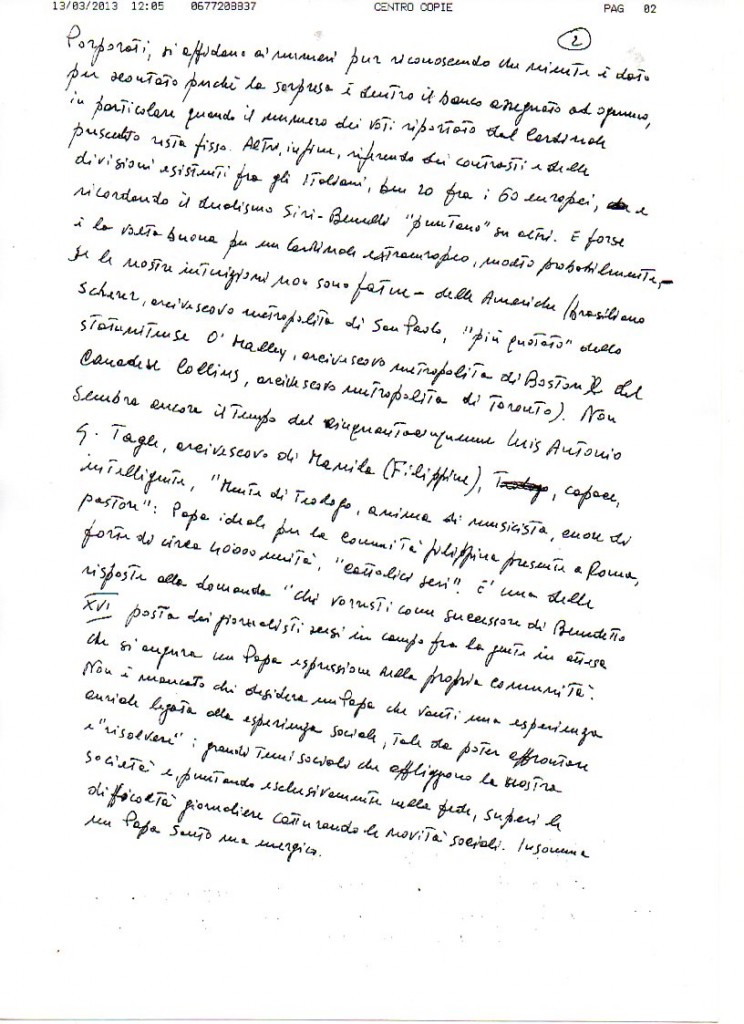 13/03/2013 12:05 0677208837 CENTRO COPIE PAG 02
2
Porporati, si affidano ai numeri pur riconoscendo che niente è dato
per scontato perché la sorpresa è dentro il banco assegnato ad ognuno,
in particolare quando il numero dei voti riportato dal Cardinale
prescelto resta fisso. Altri, infine, riferendo dei contrasti e delle
divisioni esistenti fra gli Italiani, ben 20 fra i 60 europei, e
ricordando il dualismo Siri-Benelli "puntano" su altri. E forse
è la volta buona per un Cardinale extraeuropeo, molto probabilmente,-
se le nostre intuizioni non sono fatue - delle Americhe (brasiliano
Scherer, arcivescovo metropolita di San Paolo, "più quotato" dello
statunitense O'Malley, arcivescovo metropolita di Boston e del
Canadese Collins, arcivescovo metropolita di Toronto). Non
sembra ancora il tempo del cinquantacinquenne Luis Antonio
G. Tagle, arcivescovo di Manila (Filippine), capace,
intelligente, "Mente di Teologo, anima di musicista, cuore di
pastore": Papa ideale per la comunità filippina presente a Roma,
forte di circa 40000 unità, "cattolici seri". E' una delle
risposte alla domanda "chi vorresti come successore di Benedetto
XVI posta dai giornalisti scesi in campo fra la gente in attesa
che si augura un Papa espressione della propria comunità.
Non è mancato chi desidera un Papa che vanti una esperienza
legata alla esperienza sociale, tale da poter affrontare
e "risolvere" i grandi temi sociali che affliggono la nostra
società e, puntando esclusivamente nella fede, superi le
difficoltà giornaliere catturando le novità sociali. Insomma
un Papa Santo ma energico.